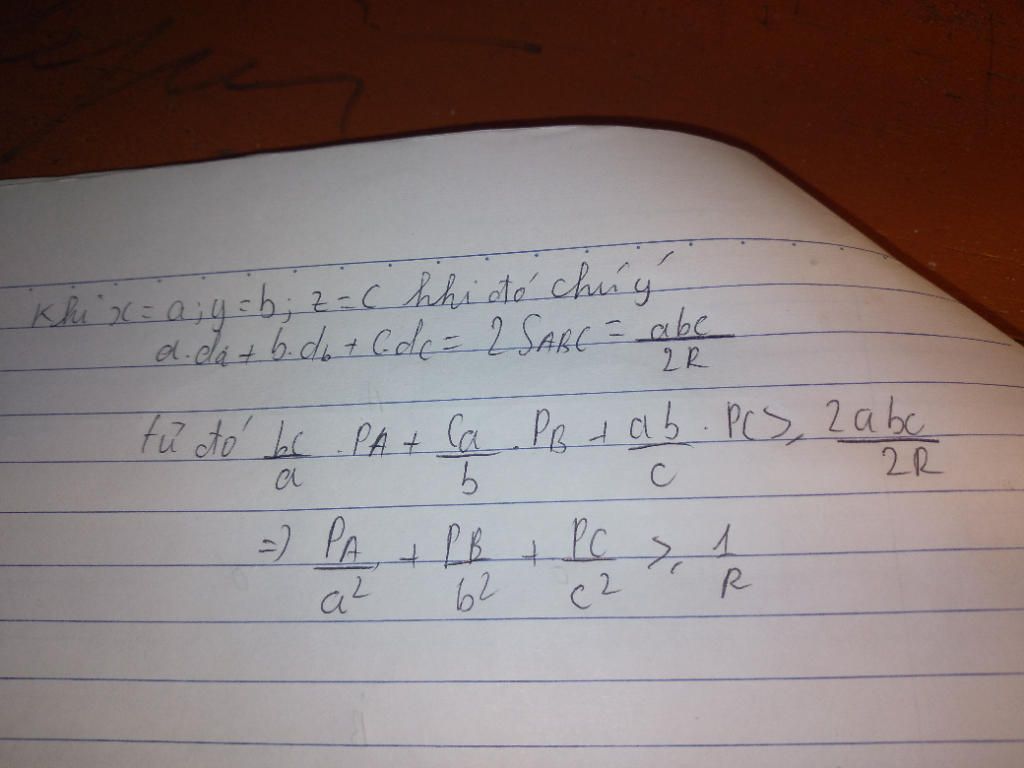 Khi x = a; y = b; z = c khi đó chú ý
a.da + b.db + c.dc = 2 SABC = abc/2R
từ đó bc/a . PA + ca/b . PB + ab/c . PC ≥ 2abc/2R
=> PA/a² + PB/b² + PC/c² ≥ 1/R